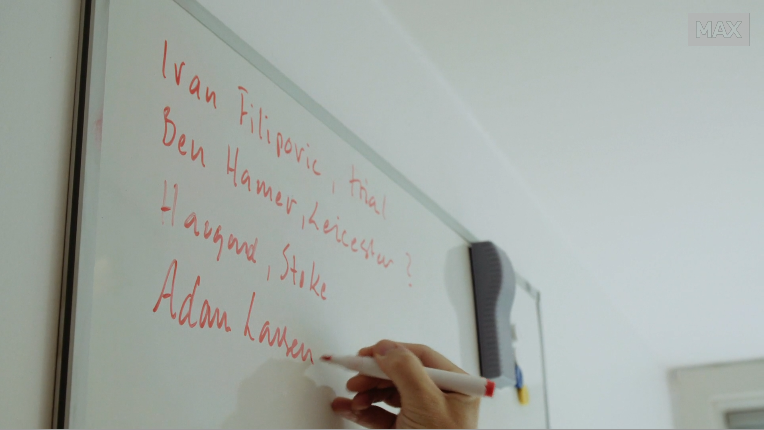 MAX
Ivan Filipovic, trial
Ben Hamer, Leicester ?
Haugaard, Stoke
Adam Larsen